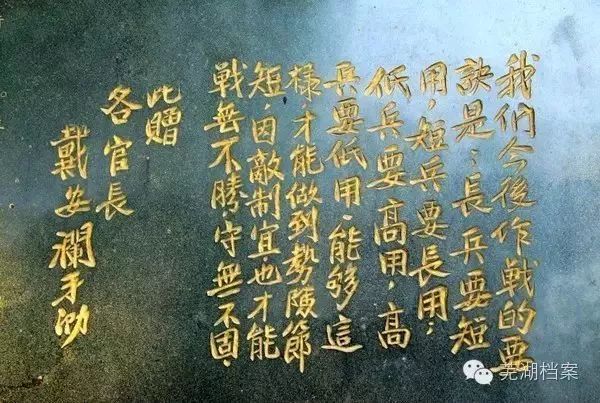 我们今後作戰的要
訣是：長兵要短
用，短兵要長用；
低兵要高用，高
兵要低用，能够這
樣，才能做到勢險節
短，因敵制宜也才能
戰無不勝，守無不固，
此贈
各官長
戴安瀾手泐
芜湖档案